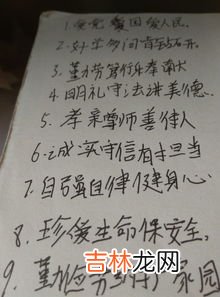 1.爱党爱国爱人民.
2.好学多问肯钻研.
3.勤劳笃行乐奉献
4.明礼守法讲美德.
5.孝亲尊师善待人
6.诚实守信有担当
7.自强自律健身心.
8.珍爱生命保安全.
9.勤俭 家园
吉林龙网